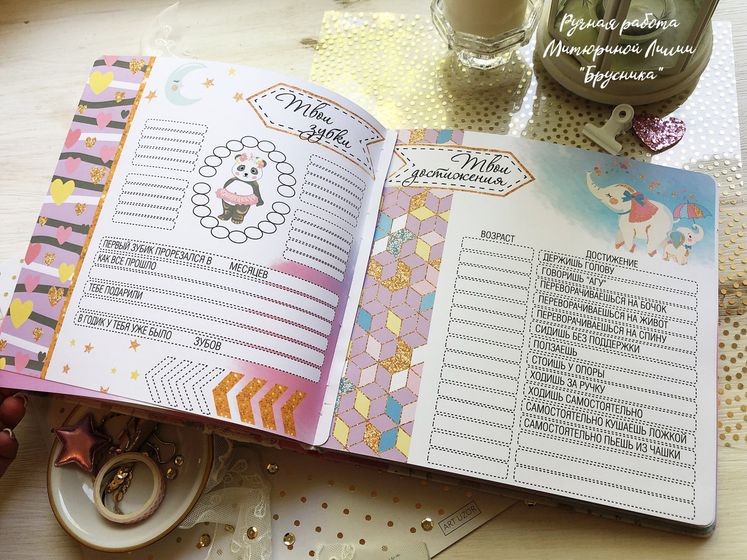 Ручная работа
Митюриной Лилии
"Брусника"
Твои
зубки
ПЕРВЫЙ ЗУБИК ПРОРЕЗАЛСЯ В МЕСЯЦЕВ
КАК ВСЕ ПРОШЛО
ТЕБЕ ПОДАРИЛИ
В ГОДИК У ТЕБЯ УЖЕ БЫЛО ЗУБОВ
Твои
достижения
ВОЗРАСТ ДОСТИЖЕНИЕ
ДЕРЖИШЬ ГОЛОВУ
ГОВОРИШЬ "АГУ"
ПЕРЕВОРАЧИВАЕШЬСЯ НА БОЧОК
ПЕРЕВОРАЧИВАЕШЬСЯ НА ЖИВОТ
ПЕРЕВОРАЧИВАЕШЬСЯ НА СПИНУ
СИДИШЬ БЕЗ ПОДДЕРЖКИ
ПОЛЗАЕШЬ
СТОИШЬ У ОПОРЫ
ХОДИШЬ ЗА РУЧКУ
ХОДИШЬ САМОСТОЯТЕЛЬНО
САМОСТОЯТЕЛЬНО КУШАЕШЬ ЛОЖКОЙ
САМОСТОЯТЕЛЬНО ПЬЁШЬ ИЗ ЧАШКИ
ART UZOR